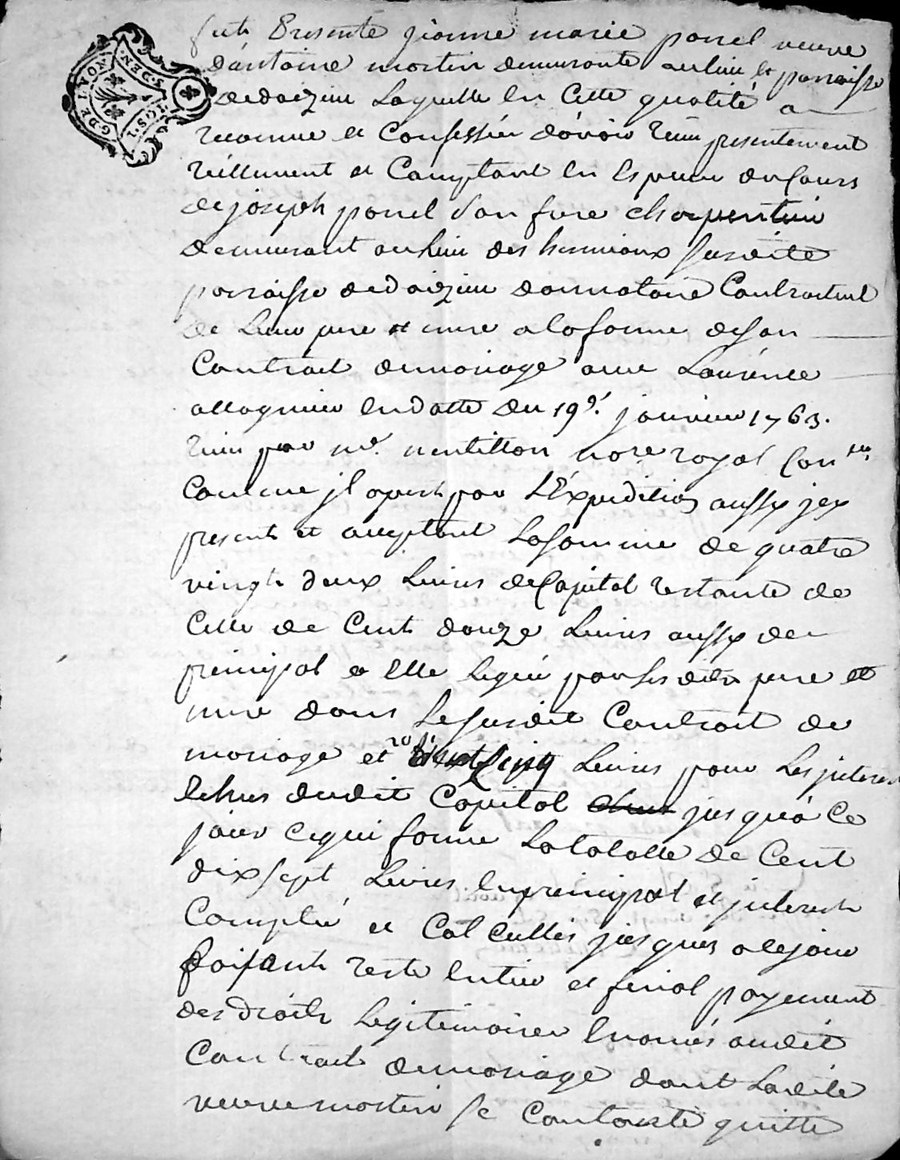 G DE LYON
2 S. DEN
1 GST.
fut Presente jeanne marie ponel veuve
d'antoine mortin demeurante au lieu et parroisse
de doizieu Laquelle en Cette qualité a
reconnue et Confessée d'avoir reçu presentement
réellement et Comptant en Espece du Cours
de joseph ponel son frere charpentier
demeurant au lieu des susdite
parroisse de doizieu donnataire Contractuel
de Leur pere et mere a la forme de son
Contract de mariage avec Laurence
en datte du 19e. janvier 1763.
reçu par me. nore royal
Comme jl apert par L'Expedition aussy jcy
present et acceptant La somme de quatre
vingt deux Livres de Capital restante de
Celle de Cent douze Livres aussy de
principal a Elle Leguée par ses dits pere et
mere dans Le susdit Contrait de
mariage et Livres pour Les jnterets
Echus dudit Capital jusqu'a Ce
jour Ce qui forme La totalle de Cent
dix sept Livres En principal et jnterets
Comptée et Calcullés jusques a Ce jour
faisant reste Entier et final payement
des droits Legitimaires Enoncés audit
Contrait de mariage dont La dite
veuve mortin se Contente quitte